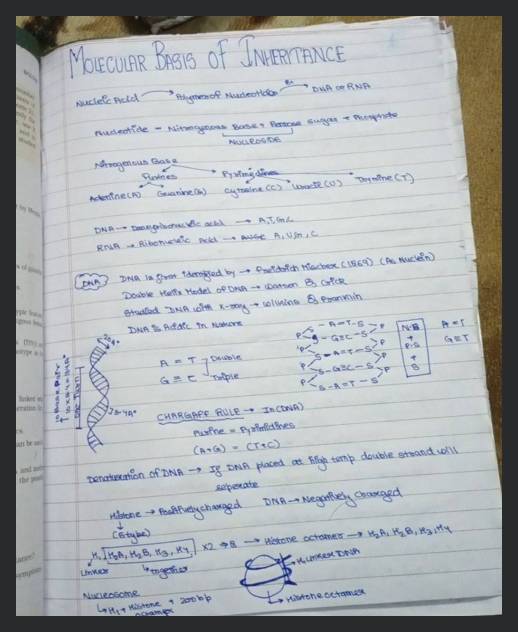 MOLECULAR BASIS OF INHERITANCE
Nucleic Acid → Polymer of Nucleotides → Ex DNA or RNA
Nucleotide = Nitrogenous Base + Pentose sugar + Phosphate
NUCLEOSIDE
Nitrogenous Base
Purines Pyrimidines
Adenine(A) Guanine(G) Cytosine(C) Uracil(U) Thymine(T)
DNA → Deoxyribonucleic acid → A,T,G,C
RNA → Ribonucleic Acid → A,U,G,C
DNA
DNA is first identified by → Freidrich Miescher (1869) (As Nuclein)
Double Helix Model of DNA → Watson & Crick
Studied DNA with X-ray → Wilkins & Franklin
DNA is Acidic in Nature
A = T Double
G ≡ C Triple
S-A=T-S
S-G≡C-S
S-A=T-S
S-G≡C-S
S-A=T-S
N.B
+
P.S
+
A=T
G≡T
10 Base Pair
One Turn
3.4A°
CHARGAFF RULE → In(DNA)
Purine = Pyrimidines
(A+G) = (T+C)
Denaturation of DNA → If DNA placed at high temp double strand will
seperate
Histone → Positively charged DNA → Negatively charged
(5 type)
H1 H2A, H2B, H3, H4 X2 → 8 → Histone octamer → H2A, H2B, H3, H4
Linker together
Linker DNA
Histone octamer
Nucleosome
H1 + Histone + 200bp
octamer